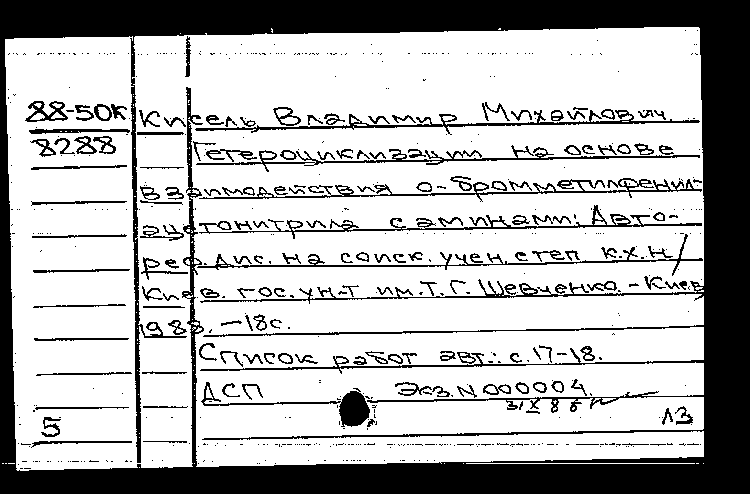 88-50К Кисель Владимир Михайлович
8288 Гетероциклизации на основе
взаимодействия о-бромметилфенил-
ацетонитрила с аминами: Авто-
реф. дис. на соиск. учен. степ к.х.н/
Киев. гос. ун-т им. Т. Г. Шевченко. - Киев,
1988. - 18с.
Список работ авт.: с. 17-18.
ДСП Экз. N 000004.
5 ЛЗ